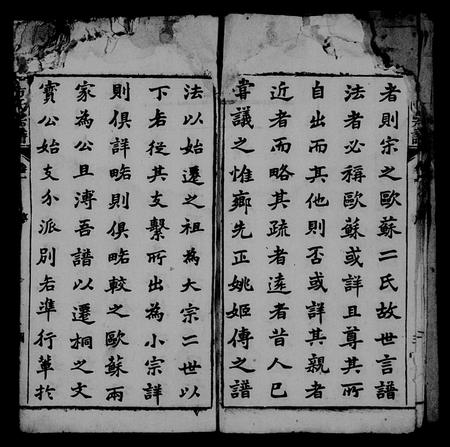 者則宗之歐蘇二氏故世言譜
法者必稱歐蘇或詳且尊其所
自出而其他則否或詳其親者
近者而略其疏者遠者昔人已
嘗議之惟鄉先正姚姬傳之譜
法以始遷之祖為大宗二世以
下各從其支繫所出為小宗詳
則俱詳略則俱略較之歐蘇兩
家為公且溥吾譜以遷桐之文
寶公始支分派別各準行輩於